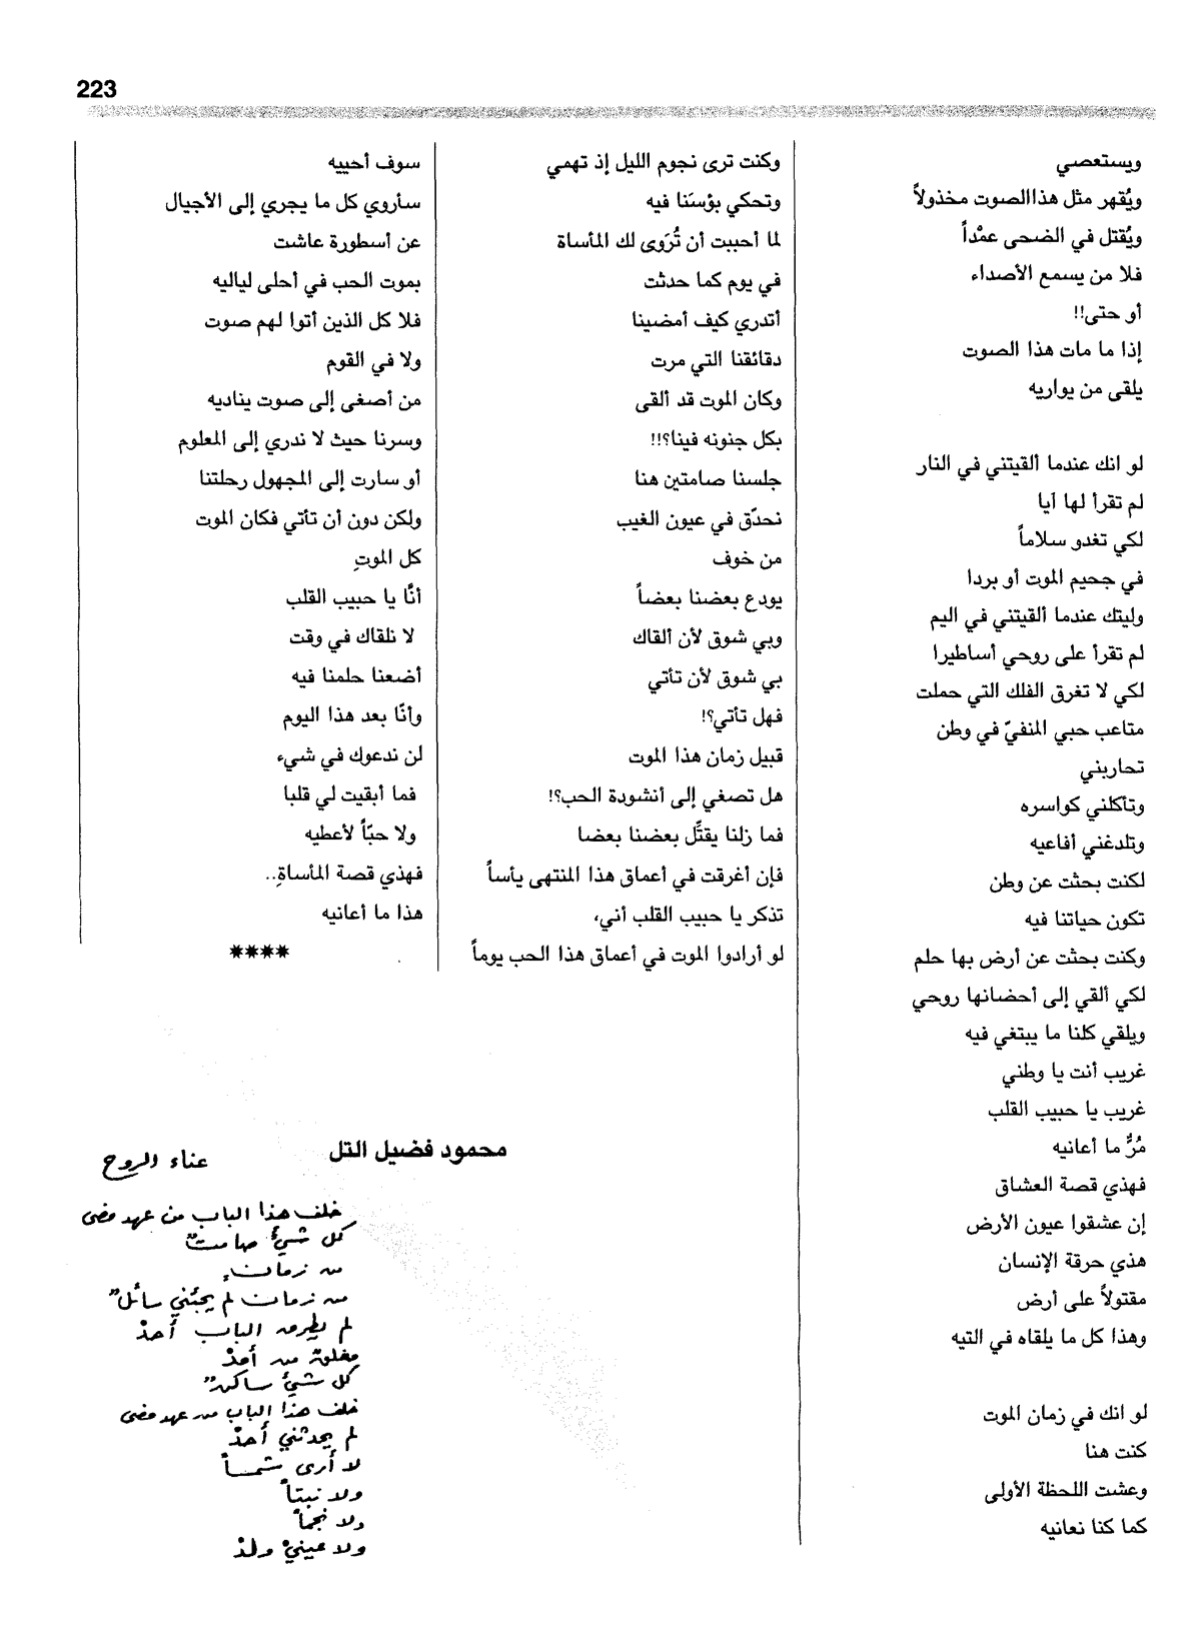 223
ويستعصي
ويُقهر مثل هذا الصوت مخذولاً
ويُقتل في الضحى عمْداً
فلا من يسمع الأصداء
أو حتى!!
إذا ما مات هذا الصوت
يلقى من يواريه
لو انك عندما ألقيتني في النار
لم تقرأ لها أيا
لكي تغدو سلاماً
في جحيم الموت أو بردا
وليتك عندما ألقيتني في اليم
لم تقرأ على روحي أساطيرا
لكي لا تغرق الفلك التي حملت
متاعب حبي المنفيّ في وطن
تحاربني
وتأكلني كواسره
وتلدغني أفاعيه
لكنت بحثت عن وطن
تكون حياتنا فيه
وكنت بحثت عن أرض بها حلم
لكي ألقي إلى أحضانها روحي
ويلقي كلنا ما يبتغي فيه
غريب أنت يا وطني
غريب يا حبيب القلب
مُرٌّ ما أعانيه
فهذي قصة العشاق
إن عشقوا عيون الأرض
هذي حرقة الإنسان
مقتولاً على أرض
وهذا كل ما يلقاه في التيه
لو انك في زمان الموت
كنت هنا
وعشت اللحظة الأولى
كما كنا نعانيه
وكنت ترى نجوم الليل إذ تهمي
وتحكي بؤسَنا فيه
لما أحببت أن تُرَوى لك المأساة
في يوم كما حدثت
أتدري كيف أمضينا
دقائقنا التي مرت
وكان الموت قد ألقى
بكل جنونه فينا؟!!
جلسنا صامتين هنا
نحدّق في عيون الغيب
من خوف
يودع بعضنا بعضاً
وبي شوق لأن ألقاك
بي شوق لأن تأتي
فهل تأتي؟!
قبيل زمان هذا الموت
هل تصغي إلى أنشودة الحب؟!
فما زلنا يقتَّل بعضنا بعضا
فإن أغرقت في أعماق هذا المنتهى يأساً
تذكر يا حبيب القلب أني،
لو أرادوا الموت في أعماق هذا الحب يوماً
سوف أحييه
سأروي كل ما يجري إلى الأجيال
عن أسطورة عاشت
بموت الحب في أحلى لياليه
فلا كل الذين أتوا لهم صوت
ولا في القوم
من أصغى إلى صوت يناديه
وسرنا حيث لا ندري إلى المعلوم
أو سارت إلى المجهول رحلتنا
ولكن دون أن تأتي فكان الموت
كل الموتِ
أنَّا يا حبيب القلب
لا نلقاك في وقت
أضعنا حلمنا فيه
وأنّا بعد هذا اليوم
لن ندعوك في شيء
فما أبقيت لي قلبا
ولا حبّاً لأعطيه
فهذي قصة المأساةِ..
هذا ما أعانيه
****
محمود فضيل التل
عناء الروح
خلف هذا الباب من عهد مضى
كل شيءٍ صامتٌ
من زمانٍ
من زمان لم يجئني سائلٌ
لم يطرق الباب أحدْ
مغلق من أمدْ
كل شيءٍ ساكنٌ
خلف هذا الباب من عهد مضى
لم يحدثني أحدْ
لا أرى شمساً
ولا نبتاً
ولا نجماً
ولا عينيْ ولدْ